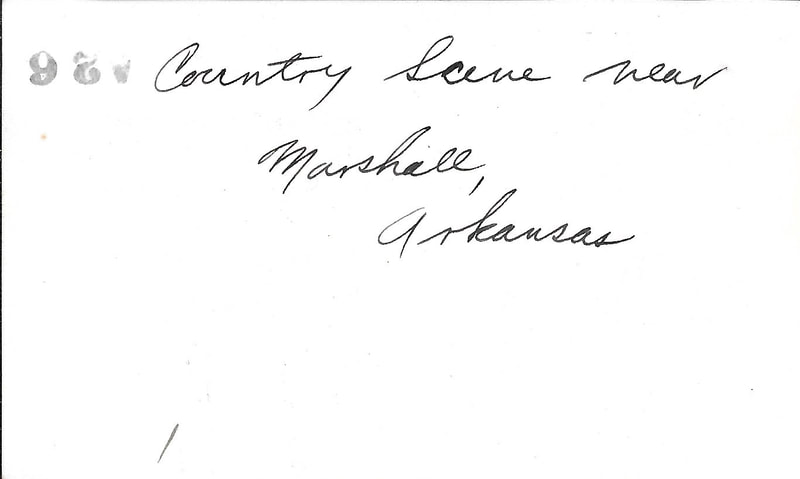 Country Scene near
Marshall,
Arkansas